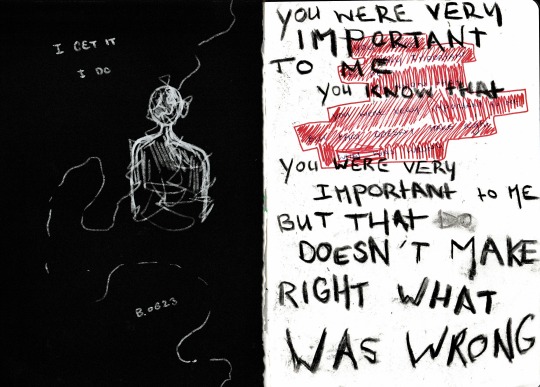 I GET IT
I DO
B.0623
YOU WERE VERY
IMPORTANT
TO ME
YOU KNOW THAT
YOU WERE VERY
IMPORTANT to ME
BUT THAT DO
DOESN'T MAKE
RIGHT WHAT
WAS WRONG